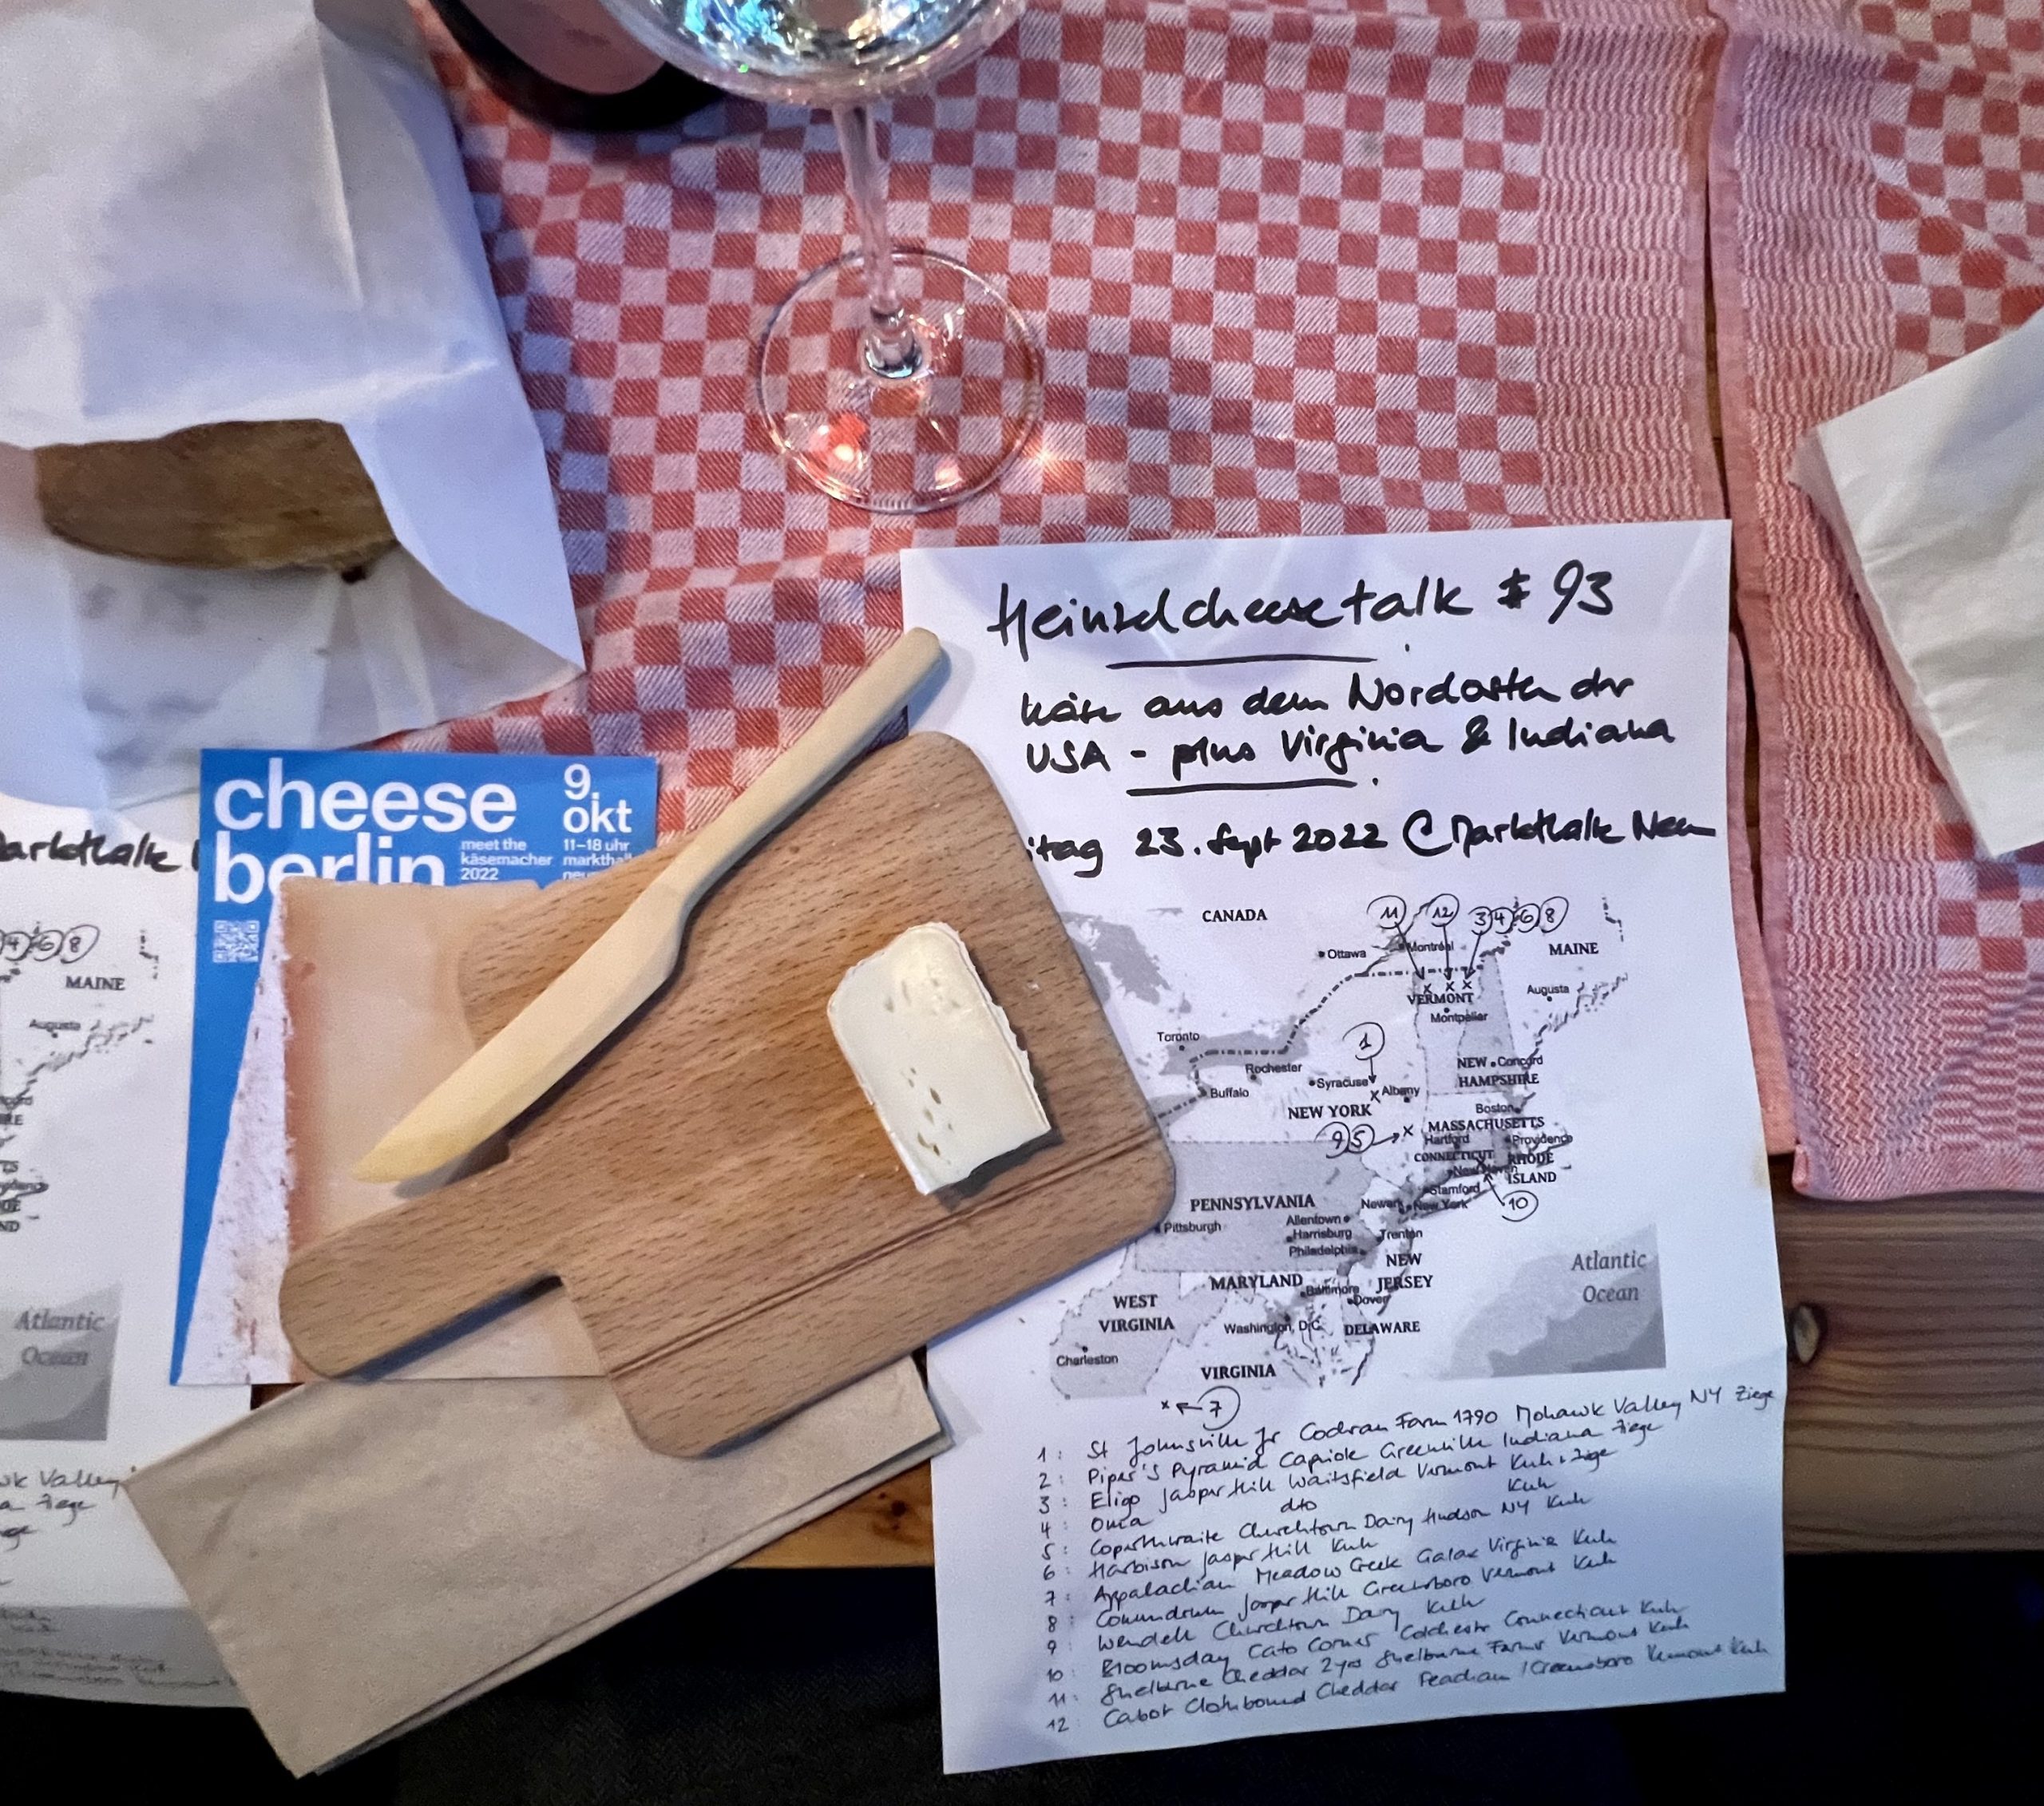 Heinzelcheesetalk # 93
Käse aus dem Nordosten der
USA - plus Virginia & Indiana
itag 23. Sept 2022 @ Markthalle Neun
CANADA
11 12 3 4 6 8
MAINE
Ottawa
Montréal
VERMONT
Augusta
Montpelier
Toronto
1
Rochester
NEW Concord
HAMPSHIRE
Buffalo
Syracuse
Albany
NEW YORK
Boston
9 5
MASSACHUSETTS
Hartford
Providence
CONNECTICUT
RHODE
ISLAND
New Haven
Stamford
10
PENNSYLVANIA
Newark
New York
Pittsburgh
Allentown
Harrisburg
Trenton
Philadelphia
NEW
JERSEY
MARYLAND
Baltimore
Dover
WEST
VIRGINIA
Washington, D.C.
DELAWARE
Charleston
VIRGINIA
Atlantic
Ocean
7
1: St Johnsville Jr Cochran Farm 1790 Mohawk Valley NY Ziege
2: Piper's Pyramid Capriole Greenville Indiana Ziege
3: Eligo Jasper Hill Waitsfield Vermont Kuh + Ziege
4: Oma dto Kuh
5: Coperthwaite Churchtown Dairy Hudson NY Kuh
6: Harbison Jasper Hill Kuh
7: Appalachian Meadow Creek Galax Virginia Kuh
8: Conundrum Jasper Hill Greensboro Vermont Kuh
9: Wendell Churchtown Dairy Kuh
10: Bloomsday Cato Corner Colchester Connecticut Kuh
11: Shelburne Cheddar 2yrs Shelburne Farms Vermont Kuh
12: Cabot Clothbound Cheddar Peacham / Greensboro Vermont Kuh
cheese
berlin
9.
okt
meet the
käsemacher
2022
11–18 uhr
markthal
arkthalle
4 6 8
MAINE
Augusta
Atlantic
Ocean
Valley
Ziege